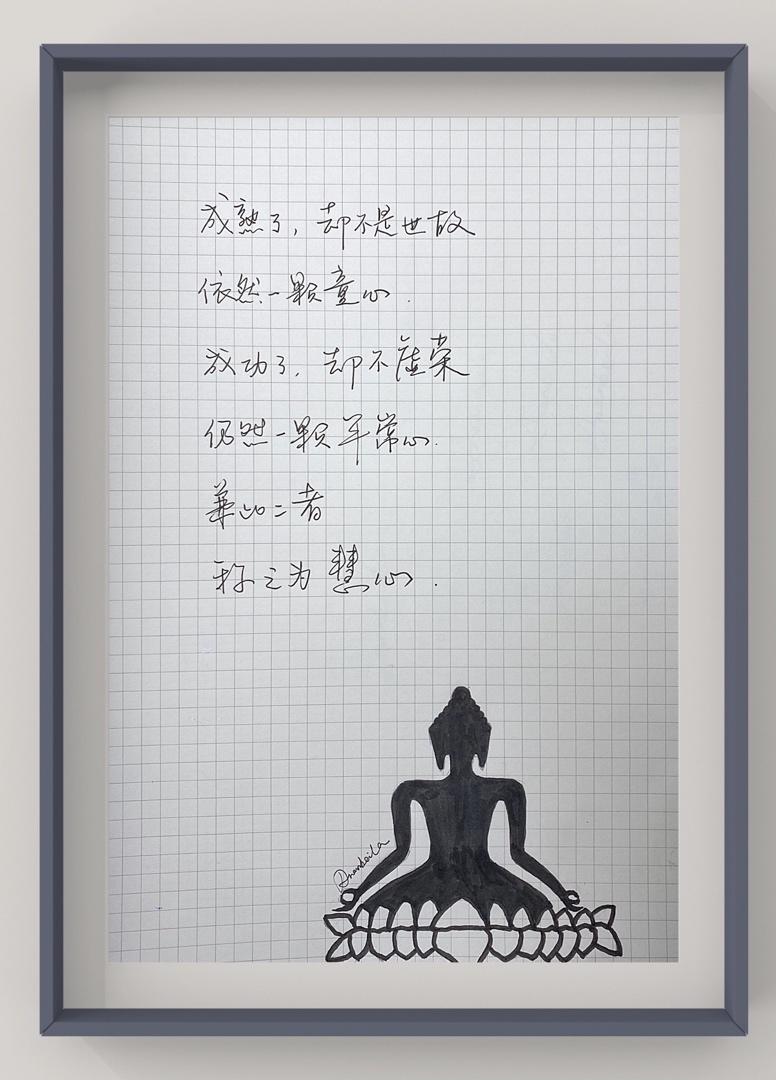 成熟了，却不是世故
依然一颗童心.
成功了，却不虚荣
仍然一颗平常心.
兼此二者
称之为慧心.